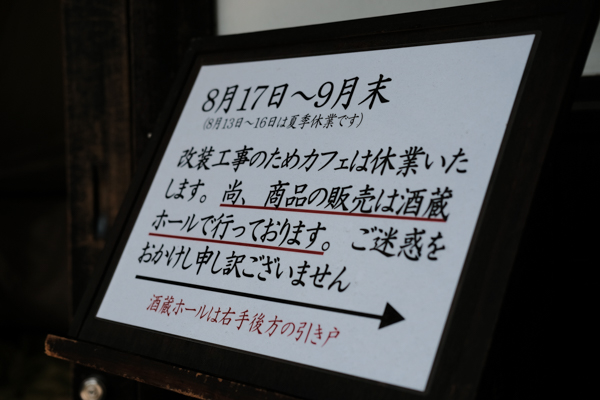 8月17日～9月末
(8月13日～16日は夏季休業です)
改装工事のためカフェは休業いた
します。尚、商品の販売は酒蔵
ホールで行っております。ご迷惑を
おかけし申し訳ございません
酒蔵ホールは右手後方の引き戸